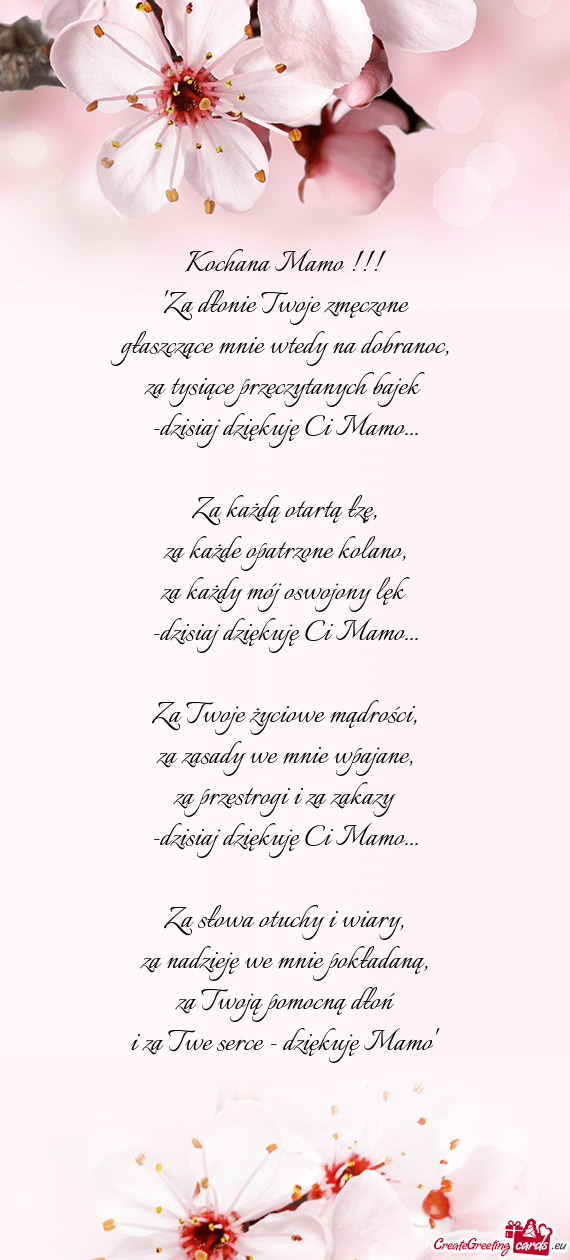 Kochana Mamo !!!
"Za dłonie Twoje zmęczone
głaszczące mnie wtedy na dobranoc,
za tysiące przeczytanych bajek
-dzisiaj dziękuję Ci Mamo...
Za każdą otartą łzę,
za każde opatrzone kolano,
za każdy mój oswojony lęk
-dzisiaj dziękuję Ci Mamo...
Za Twoje życiowe mądrości,
za zasady we mnie wpajane,
za przestrogi i za zakazy
-dzisiaj dziękuję Ci Mamo...
Za słowa otuchy i wiary,
za nadzieję we mnie pokładaną,
za Twoją pomocną dłoń
i za Twe serce - dziękuję Mamo"
CreateGreeting cards .eu